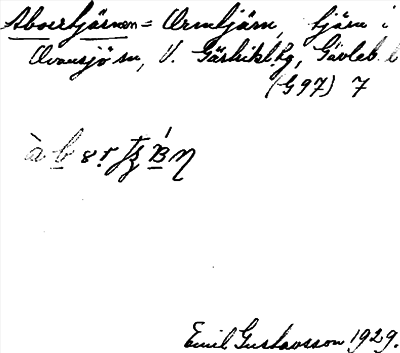 Abortjärnen = Ormtjärn, tjärn i
Ovansjö sn, V. Gästrikl. hg, Gävleb. l
(G 97) 7
Emil Gustavsson 1929.